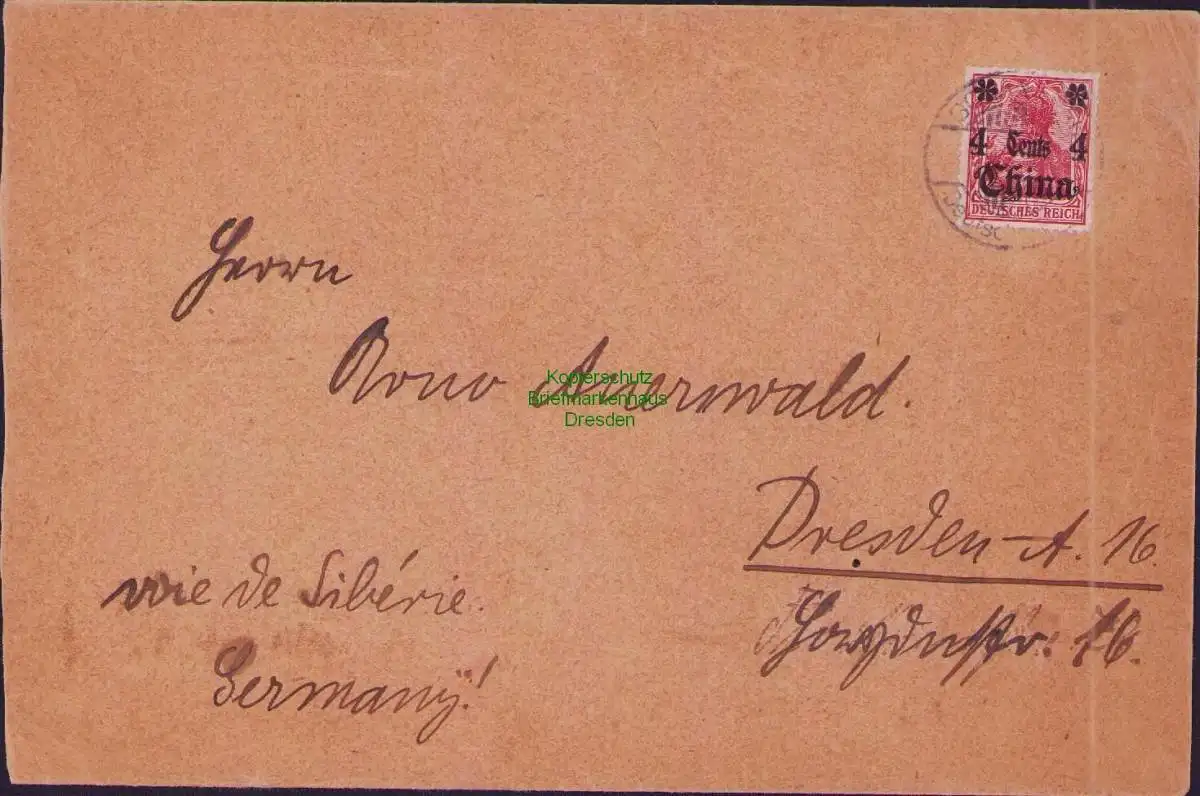 4 Cents 4
China
DEUTSCHES REICH
Herrn
Arno Auerswald.
Kopierschutz
Briefmarkenhaus
Dresden
Dresden-A. 16.
Haydnstr. 16.
voie de Sibérie.
Germany!